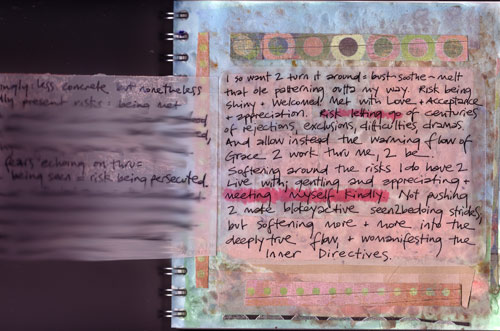 ngly: less concrete but nonetheless
lly present risks: being met
fears echoing on thru =
being seen = risk being persecuted.
I so want 2 turn it around = bust-soothe-melt
that ole patterning outta my way. Risk being
shiny + welcomed! Met with Love + Acceptance
+ appreciation. Risk letting go of centuries
of rejections, exclusions, difficulties, dramas.
And allow instead the warming flow of
Grace 2 work thru me, 2 be.
Softening around the risks I do have 2
Live with; gentling and appreciating +
meeting myself kindly. Not pushing
2 make blatoyactive seen2bedoing strides,
but softening more + more into the
deeply true flow, + womanifesting the
Inner Directives.